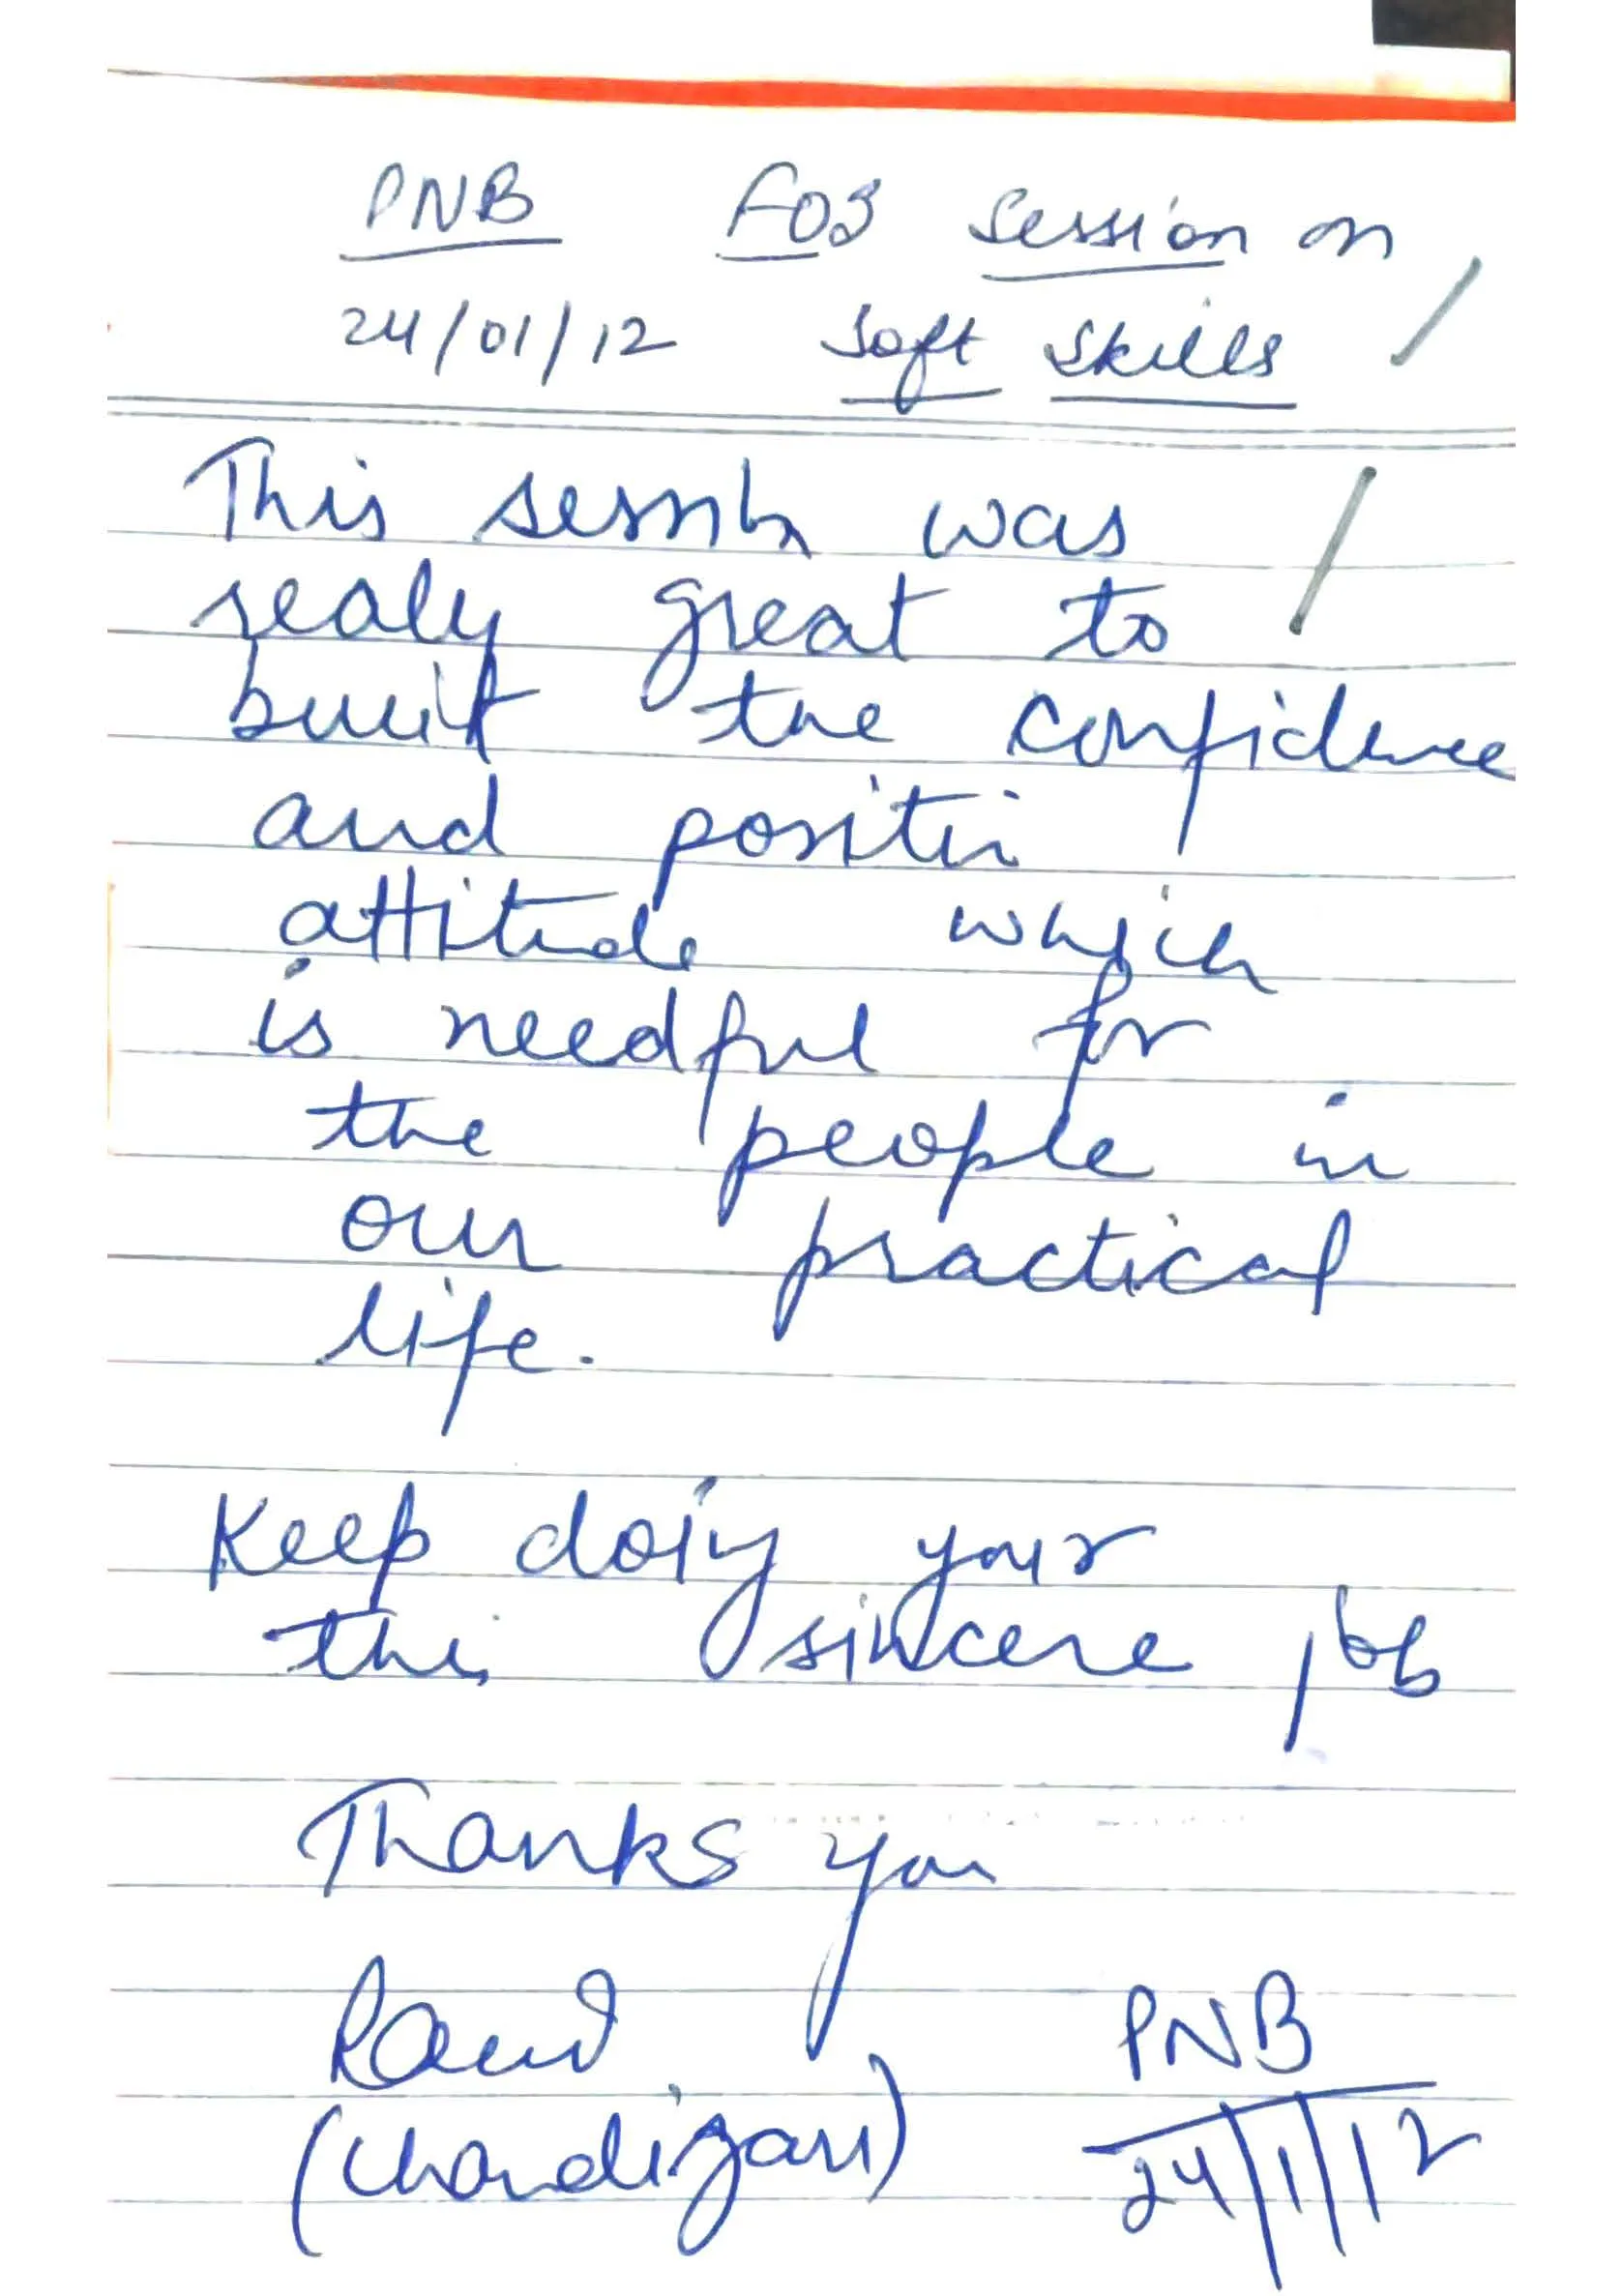 PNB FOS session on
24/01/12 Soft Skills
This session was
realy great to
built the confidence
and positiv
attitude which
is needful for
the people in
our practical
life.
Keep doing your
this sincere job
Thanks you
PNB
(Chandigarh) 24/1/12